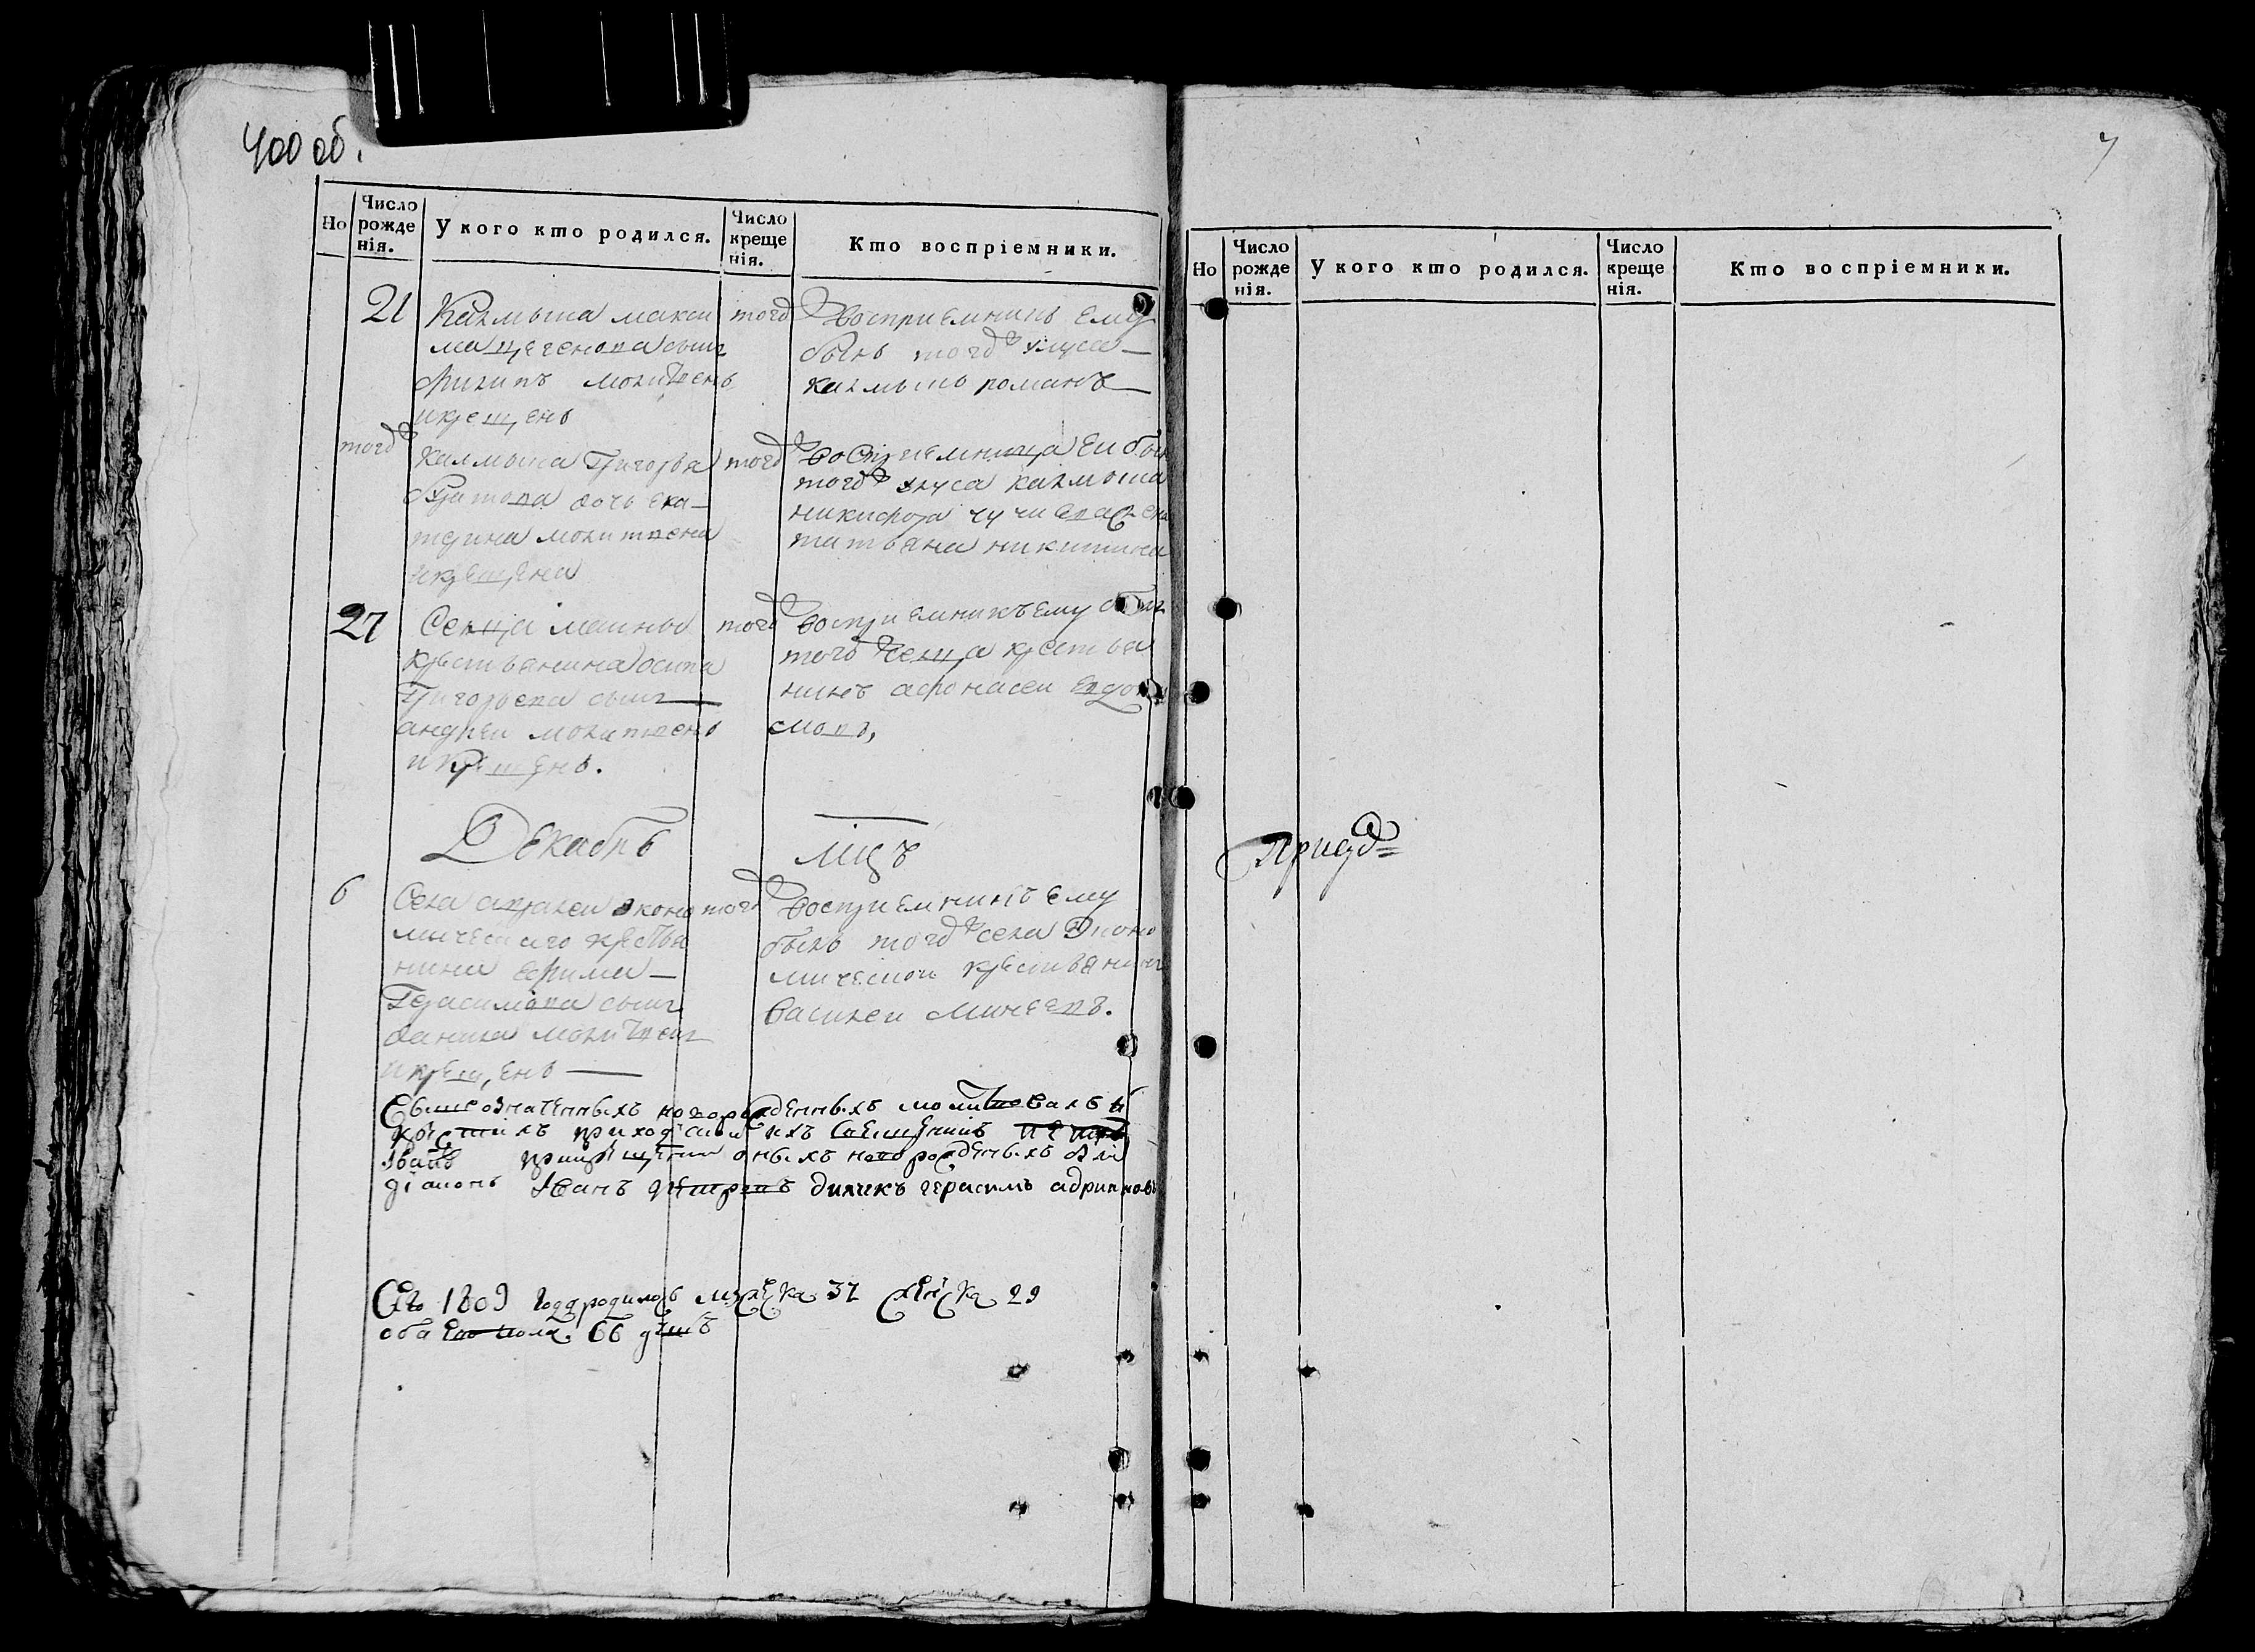 400 об.
Но
Число рожде нія.
У кого кто родился.
Число креще нія.
Кто воспріемники.
21
Калмыка макси
ма сынъ
филипъ молитвенъ
и крещенъ
того
Восприемникъ ему
былъ того улуса
калмыкъ романъ
того
калмыка Григорья
дочь ека
терина молитвена
и крещена
того
Восприемница еи была
того улуса калмыка
никифора
татьяна никитина
27
Селца
крестьянина осипа
Григорьева сынъ
андреи молитвенъ
и крещенъ.
того
Восприемникъ ему былъ
того селца крестья
нинъ афонасеи евдоки
мовъ,
Декабрь
мцъ
6
Села эконо
мическаго крестья
нина ефима
Герасимова сынъ
данила молитвенъ
и крещенъ
того
Восприемникъ ему
былъ того села Эконо
мической крестьянинъ
Василеи Минеевъ.
Вышеозначенныхъ новорожденныхъ молитвовалъ и
крестилъ приход ихъ священникъ петръ
Iванъ при крещении оныхъ новорожденыхъ были
дiаконъ Iванъ петровъ дьячекъ герасимъ адриановъ
Сего 1809 года родилось мужеска 37 женска 29
обаего пола 66 душъ
7
Но
Число рожде нія.
У кого кто родился.
Число креще нія.
Кто воспріемники.